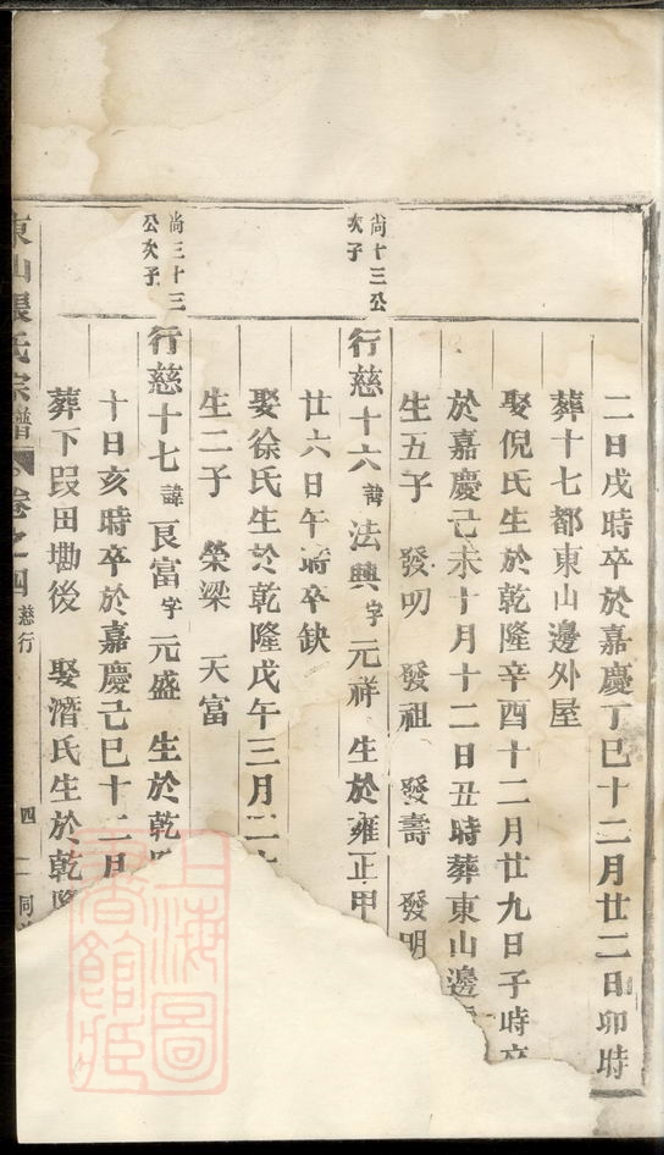 二日戌時卒於嘉慶丁巳十二月廿二日卯時
葬十七都東山邊外屋
娶倪氏生於乾隆辛酉十二月廿九日子時卒
於嘉慶己未十月十二日丑時葬東山邊
生五子 發明 發祖 發壽 發明
尚十三公
次子
行慈十六諱法興字元祥 生於雍正甲
廿六日午時卒缺
娶徐氏生於乾隆戊午三月二
生二子 榮梁 天富
尚三十三
公次子
行慈十七諱良富字元盛 生於乾
十日亥時卒於嘉慶己巳十二月
葬下段田勘後 娶潛氏生於乾隆
東山張氏宗譜 卷之四 慈行 四 二 同
上海圖
書館藏